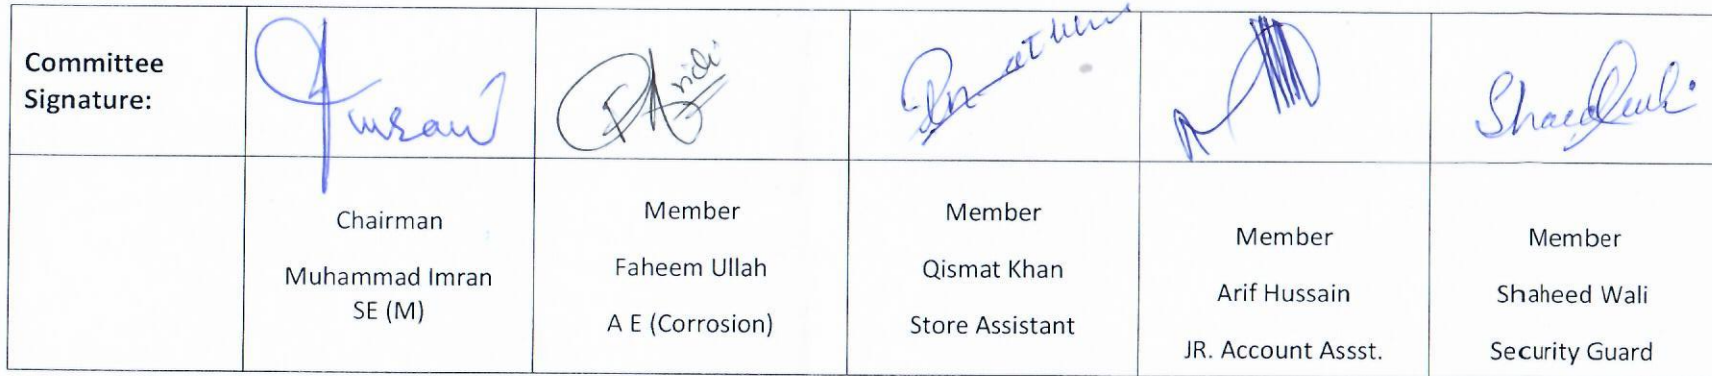 Committee
Signature:
Imran
Chairman
Muhammad Imran
SE (M)
Member
Faheem Ullah
A E (Corrosion)
Member
Qismat Khan
Store Assistant
Member
Arif Hussain
JR. Account Assst.
Member
Shaheed Wali
Security Guard